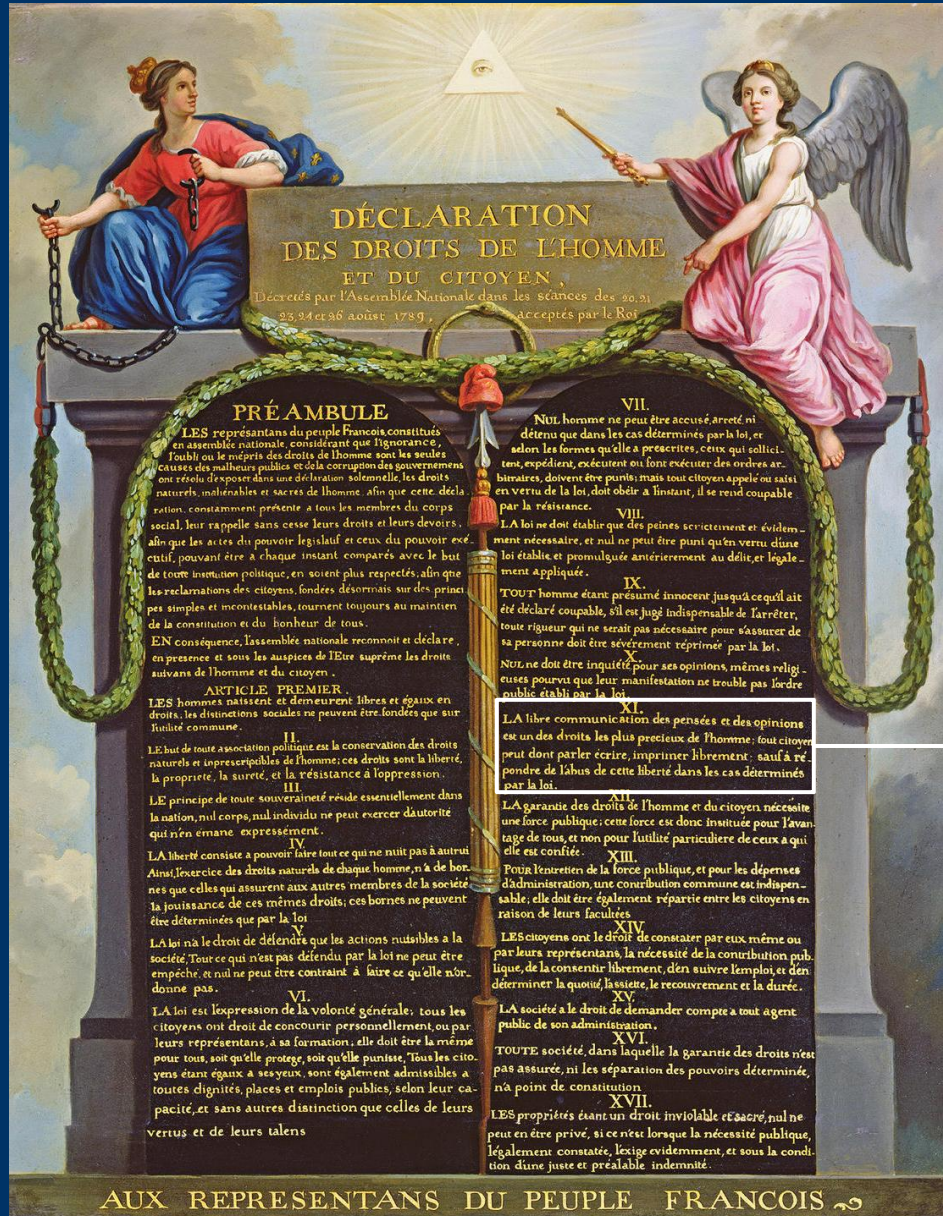 DÉCLARATION
DES DROITS DE L'HOMME
ET DU CITOYEN,
Décretés par l'Assemblée Nationale dans les séances des 20, 21
23, 24 et 26 aoûst 1789, acceptés par le Roi
PRÉAMBULE
LES représantans du peuple Francois, constitués
en assemblée nationale, considérant que l'ignorance,
l'oubli ou le mépris des droits de l'homme sont les seules
causes des malheurs publics et de la corruption des gouvernemens
ont résolu d'exposer dans une déclaration solemnelle, les droits
naturels, inaliénables et sacrés de l'homme, afin que cette décla
ration, constamment présente a tous les membres du corps
social, leur rappelle sans cesse leurs droits et leurs devoirs,
afin que les actes du pouvoir legislatif et ceux du pouvoir exé
cutif, pouvant être a chaque instant comparés avec le but
de toute institution politique, en soient plus respectés; afin que
les reclamations des citoyens, fondées désormais sur des princi
pes simples et incontestables, tournent toujours au maintien
de la constitution et du bonheur de tous.
EN conséquence, l'assemblée nationale reconnoit et déclare,
en presence et sous les auspices de l'Etre suprême les droits
suivans de l'homme et du citoyen.
ARTICLE PREMIER.
LES hommes naissent et demeurent libres et égaux en
droits, les distinctions sociales ne peuvent être fondées que sur
l'utilité commune.
II.
LE but de toute association politique est la conservation des droits
naturels et inprescriptibles de l'homme; ces droits sont la liberté,
la propriété, la sureté, et la résistance à l'oppression.
III.
LE principe de toute souveraineté réside essentiellement dans
la nation, nul corps, nul individu ne peut exercer d'autorité
qui n'en émane expressément.
IV.
LA liberté consiste a pouvoir faire tout ce qui ne nuit pas à autrui
Ainsi, l'exercice des droits naturels de chaque homme, n'a de bor-
nes que celles qui assurent aux autres membres de la société
la jouissance de ces mêmes droits; ces bornes ne peuvent
être déterminées que par la loi
V.
LA loi n'a le droit de défendre que les actions nuisibles a la
société, Tout ce qui n'est pas défendu par la loi ne peut être
empêché, et nul ne peut être contraint à faire ce qu'elle n'or-
donne pas.
VI.
LA loi est l'expression de la volonté générale; tous les
citoyens ont droit de concourir personnellement, ou par
leurs représentans, à sa formation; elle doit être la même
pour tous, soit qu'elle protege, soit qu'elle punisse, Tous les cito-
yens étant égaux a ses yeux, sont également admissibles a
toutes dignités, places et emplois publics, selon leur ca-
pacité, et sans autres distinction que celles de leurs
vertus et de leurs talens
VII.
NUL homme ne peut être accusé, arreté, ni
détenu que dans les cas déterminés par la loi, et
selon les formes qu'elle a prescrites, ceux qui sollici-
tent, expédient, exécutent ou font exécuter des ordres ar-
bitraires, doivent être punis; mais tout citoyen appelé ou saisi
en vertu de la loi, doit obéir a l'instant, il se rend coupable
par la résistance.
VIII.
LA loi ne doit établir que des peines strictement et évidem-
ment nécessaire, et nul ne peut être puni qu'en vertu d'une
loi établie, et promulguée antérierement au délit, et légale-
ment appliquée.
IX.
TOUT homme étant présumé innocent jusqu'a ce qu'il ait
été déclaré coupable, s'il est jugé indispensable de l'arrêter,
toute rigueur qui ne serait pas nécessaire pour s'assurer de
sa personne doit être sévèrement réprimée par la loi.
X.
NUL ne doit être inquiété pour ses opinions, mêmes religi-
euses pourvu que leur manifestation ne trouble pas l'ordre
public établi par la loi.
XI.
LA libre communication des pensées et des opinions
est un des droits les plus precieux de l'homme; tout citoyen
peut dont parler écrire, imprimer librement; sauf à ré-
pondre de l'abus de cette liberté dans les cas déterminés
par la loi.
XII.
LA garantie des droits de l'homme et du citoyen nécessite
une force publique; cette force est donc instituée pour l'avan-
tage de tous, et non pour l'utilité particuliere de ceux a qui
elle est confiée.
XIII.
POUR l'entretien de la force publique, et pour les dépenses
d'administration, une contribution commune est indispen-
sable; elle doit être également répartie entre les citoyens en
raison de leurs facultées
XIV.
LES citoyens ont le droit de constater par eux même ou
par leurs représentans, la nécessité de la contribution pub-
lique, de la consentir librement, d'en suivre l'emploi, et d'en
déterminer la quotité, l'assiette, le recouvrement et la durée.
XV.
LA société a le droit de demander compte a tout agent
public de son administration.
XVI.
TOUTE société, dans laquelle la garantie des droits n'est
pas assurée, ni les séparation des pouvoirs déterminée,
n'a point de constitution
XVII.
LES propriétés étant un droit inviolable et sacré, nul ne
peut en être privé, si ce n'est lorsque la nécessité publique,
légalement constatée, l'exige evidemment, et sous la condi-
tion d'une juste et préalable indemnité.
AUX REPRESENTANS DU PEUPLE FRANCOIS